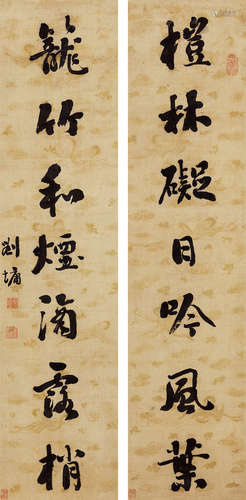 榿林礙日吟風葉
籠竹和煙滴露梢
劉墉